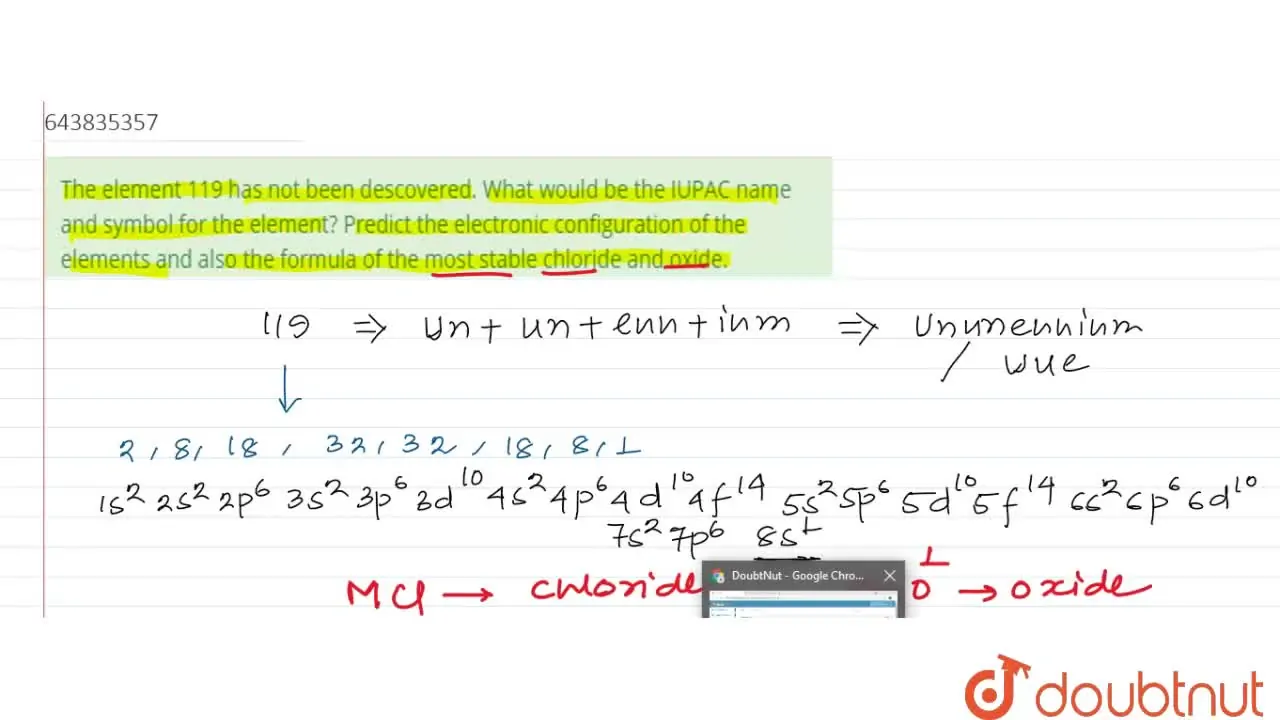 643835357
The element 119 has not been descovered. What would be the IUPAC name
and symbol for the element? Predict the electronic configuration of the
elements and also the formula of the most stable chloride and oxide.
119 ⇒ un + un + enn + ium ⇒ Ununennium
/ uue
↓
2, 8, 18, 32, 32, 18, 8, 1
1s² 2s² 2p⁶ 3s² 3p⁶ 3d¹⁰ 4s² 4p⁶ 4d¹⁰ 4f¹⁴ 5s² 5p⁶ 5d¹⁰ 5f¹⁴ 6s² 6p⁶ 6d¹⁰
7s² 7p⁶ 8s¹
MCl → chloride O → oxide
DoubtNut - Google Chro...
doubtnut